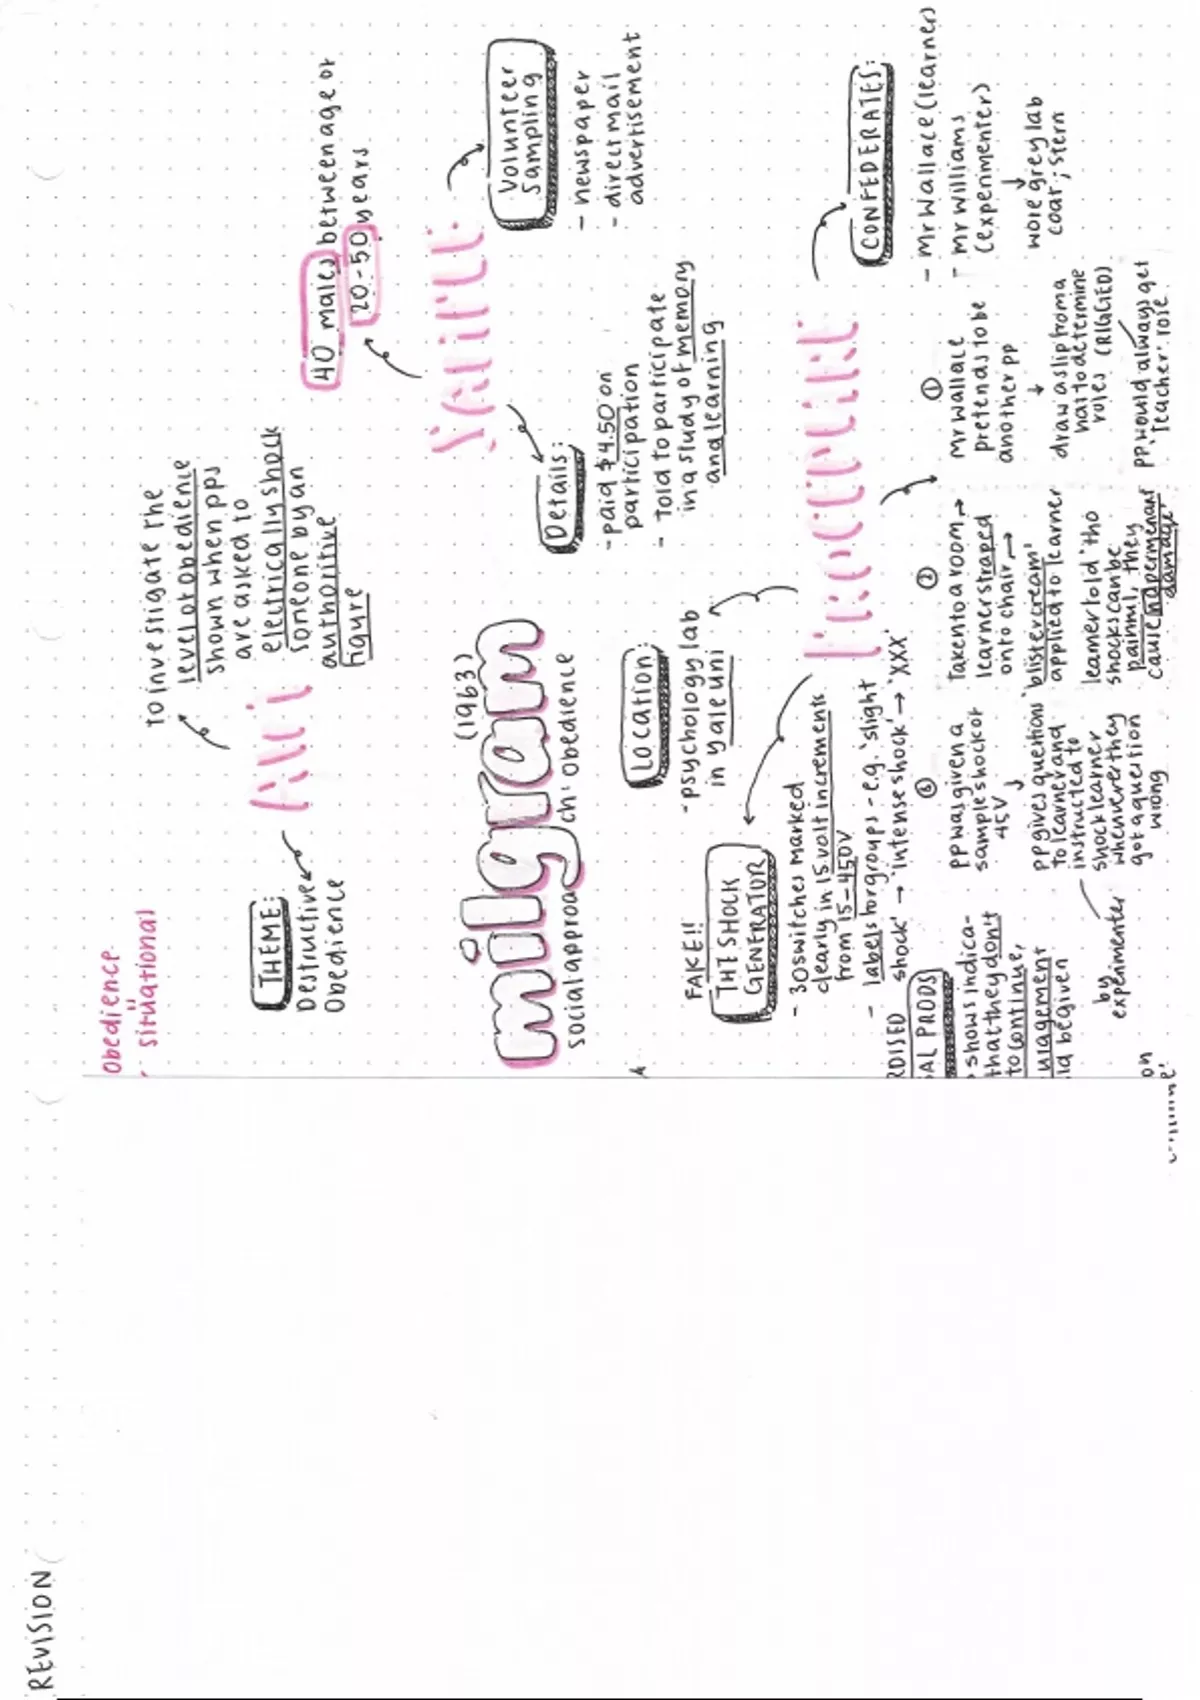 REVISION
Obedience
situational
THEME:
Destructive
Obedience
AIM
to investigate the
level of obedience
shown when pps
are asked to
eletrically shock
someone by an
authoritive
figure
milgram
(1963)
social approach: Obedience
SAMPLE:
40 males between age of
20-50 years
Volunteer
Sampling
- newspaper
- direct mail
advertisement
Details:
- paid $4.50 on
participation
- told to participate
in a study of memory
and learning
PROCEDURE
Location:
- psychology lab
in yale uni
FAKE!!
THE SHOCK
GENERATOR
- 30 switches marked
clearly in 15 volt increments
from 15-450V
- labels for groups - e.g. 'slight
shock' → 'intense shock' → 'XXX'
CONFEDERATES:
- Mr Wallace (learner)
- Mr Williams
(experimenter)
↓
wore grey lab
coat; stern
①
Mr Wallace
pretends to be
another pp
↓
draw a slip from a
hat to determine
roles (RIGGED)
pp would always get
'teacher' role
②
Taken to a room →
learner straped
onto chair →
'blister cream'
applied to learner
learner told 'tho
shocks can be
painful, they
cause no permenant
damage'
③
pp was given a
sample shock of
45V
↓
pp gives questions
to learner and
instructed to
shock learner
whenever they
got a question
wrong
by
experimenter
RDISED
AL PRODS
shows indica-
that they don't
to continue,
uragement
ld be given
on